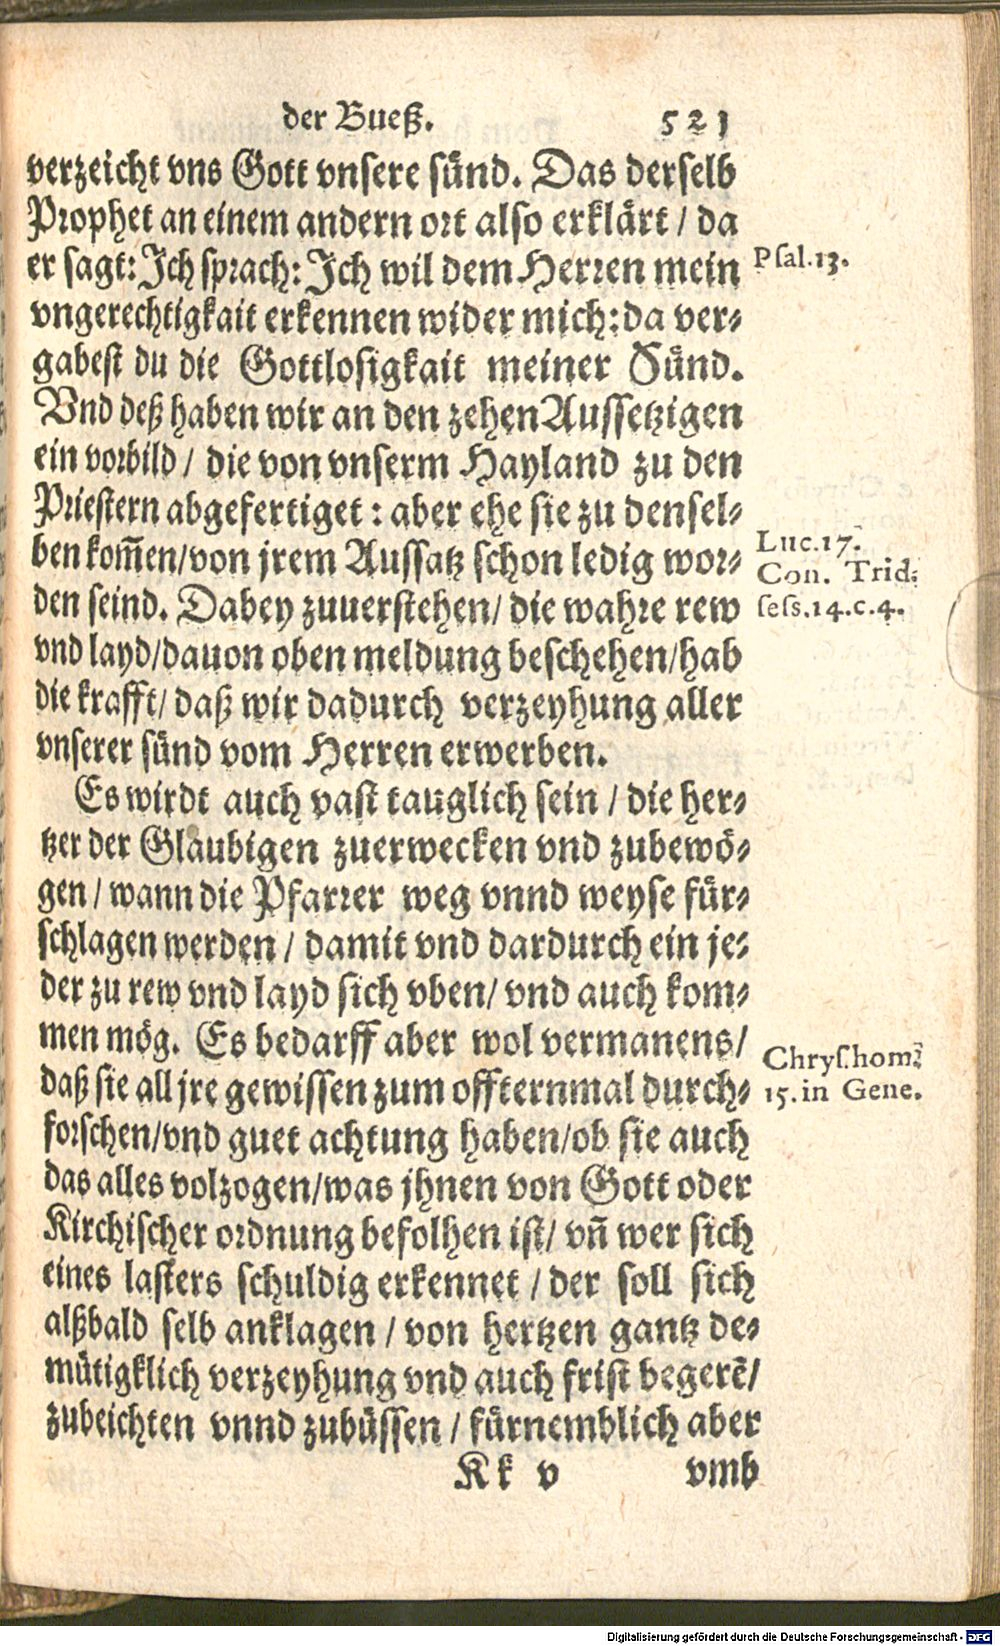 der Bueß. 521
verzeicht vns Gott vnsere sünd. Das derselb
Prophet an einem andern ort also erklärt / da
er sagt: Ich sprach: Ich wil dem Herren mein
Psal.13.
vngerechtigkait erkennen wider mich: da ver-
gabest du die Gottlosigkait meiner Sünd.
Vnd deß haben wir an den zehen Aussetzigen
ein vorbild / die von vnserm Hayland zu den
Priestern abgefertiget : aber ehe sie zu densel-
ben kom̄en/von jrem Aussatz schon ledig wor-
Luc.17.
Con. Trid.
den seind. Dabey zuuerstehen/ die wahre rew
sess.14.c.4.
vnd layd/dauon oben meldung beschehen/hab
die krafft/ daß wir dadurch verzeyhung aller
vnserer sünd vom Herren erwerben.
Es wirdt auch vast tauglich sein / die her-
tzer der Glaubigen zuerwecken vnd zubewö-
gen / wann die Pfarrer weg vnnd weyse für-
schlagen werden / damit vnd dardurch ein je-
der zu rew vnd layd sich vben/ vnd auch kom-
men mög. Es bedarff aber wol vermanens/
Chrys.hom.
daß sie all jre gewissen zum offternmal durch-
15.in Gene.
forschen/vnd guet achtung haben/ob sie auch
das alles volzogen/was jhnen von Gott oder
Kirchischer ordnung befolhen ist/ vn̄ wer sich
eines lasters schuldig erkennet / der soll sich
alßbald selb anklagen / von hertzen gantz de-
mütigklich verzeyhung vnd auch frist begerē/
zubeichten vnnd zubüssen / fürnemblich aber
Kk v vmb
Digitalisierung gefördert durch die Deutsche Forschungsgemeinschaft - DFG